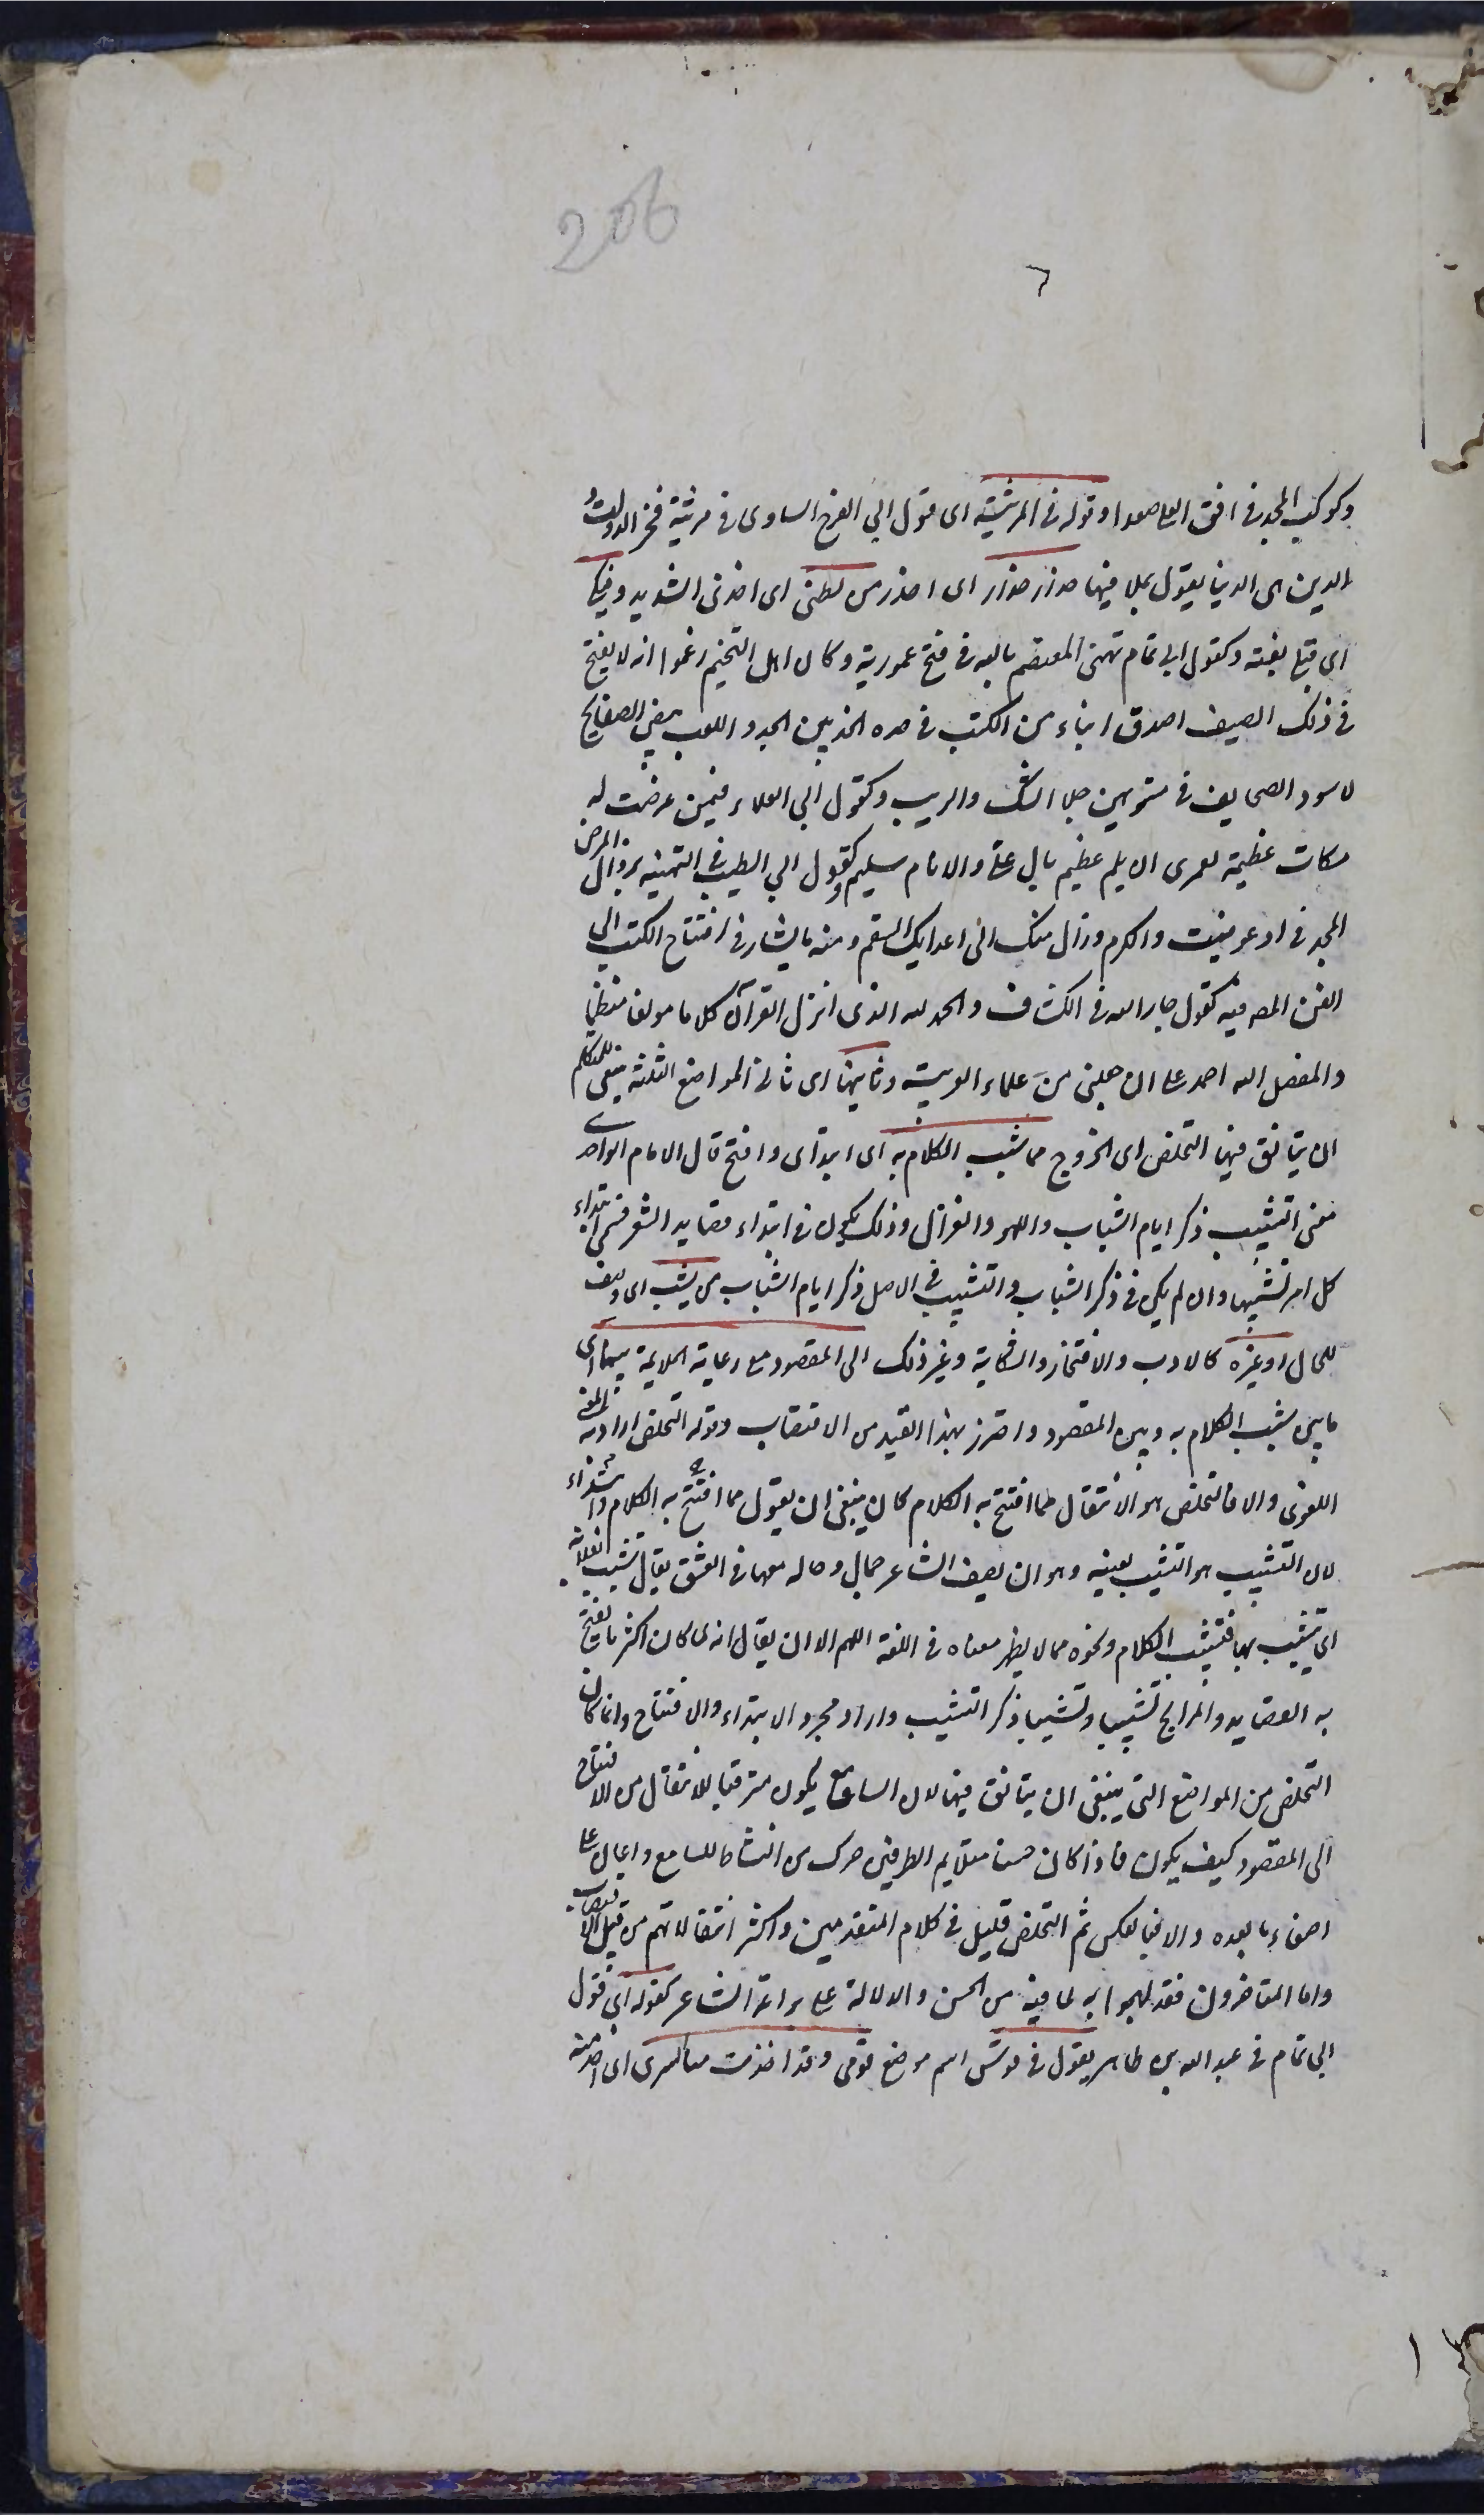 206
٦
وكوكب المجد فى افق العلى صعدا وقوله فى المرثية اى قول ابى الفرج الساوى فى مرثية فخر الدولة
الدين هى الدنيا يقول بملا فيها حذار حذار اى احذر من بطشى اى اخذى الشديد وفتكى
اى قتلى بغتة وكقول ابى تمام تهنى المعتصم بالله فى فتح عمورية وكان اهل التنجيم زعموا انه لا يفتح
فى ذلك الصيف اصدق انباء من الكتب فى حده الحد بين الجد واللعب بيض الصفايح
لا سود الصحايف فى متونهن جلا الشك والريب وكقول ابى العلاء فيمن عرضت له
شكات عظيمة لعمرى ان يلم عظيم بال على والانام سليم وكقول ابى الطيب فى التهنية بزوال المرض
المجد فى اذ عوفيت والكرم وزال منك الى اعدايك السقم ومنه ما يشار فى افتتاح الكتب الى
الفن المص فيه كقول جار الله فى الكشاف والحمد لله الذى انزل القرآن كلاما مولفا منظما
والمفصل الله احمد على ان جعلنى من علماء العربية وثانيها اى ثانى المواضع الثلثة ينبغى للمتكلم
ان يتانق فيها التخلص اى الخروج مما شبب الكلام به اى ابتدى وافتتح قال الامام الواحدى
معنى التشبيب ذكر ايام الشباب واللهو والغزل وذلك يكون فى ابتداء قصايد الشعر فسمى ابتداء
كل امر تشبيبا وان لم يكن فى ذكر الشباب والتشبيب فى الاصل ذكر ايام الشباب من تشبيب اى وصف
للجمال او غيره كالادب والافتخار والشكاية وغير ذلك الى المقصود مع رعاية الملايمة بينهما اى
ما بين شبب الكلام به وبين المقصود واحترز بهذا القيد من الاقتضاب وقوله التخلص اراد به المعنى
اللغوى والا فالتخلص هو الانتقال مما افتتح به الكلام كان ينبغى ان يقول مما افتتح به الكلام وابتداء
لان التشبيب هو التشبيب بعينه وهو ان يصف الشاعر جمال وحاله معها فى العشق يقال تشبب بفلانة
اى تشبب بها فتشبب الكلام ونحوه مما لا يظهر معناه فى اللغة اللهم الا ان يقال انه لما كان اكثر ما يفتتح
به القصايد والمدايح تشبيبا وتشبيبا ذكر التشبيب واراد مجرد الابتداء والافتتاح وانما كان
التخلص من المواضع التى ينبغى ان يتانق فيها لان السامع يكون مترقبا للانتقال من الافتتاح
الى المقصود كيف يكون فاذا كان حسنا متلايم الطرفين حرك من النشاط للسامع واعان على
اصغاء ما بعده والا فبالعكس ثم التخلص قليل فى كلام المتقدمين واكثر انتقالاتهم من قبيل الاقتضاب
واما المتاخرون فقد لهجوا به لما فيه من الحسن والدلالة على براعة الشاعر كقوله اى قول
ابى تمام فى عبد الله بن طاهر يقول فى قومس اسم موضع قومى وقد اخذت منا السرى اى اخذ منه